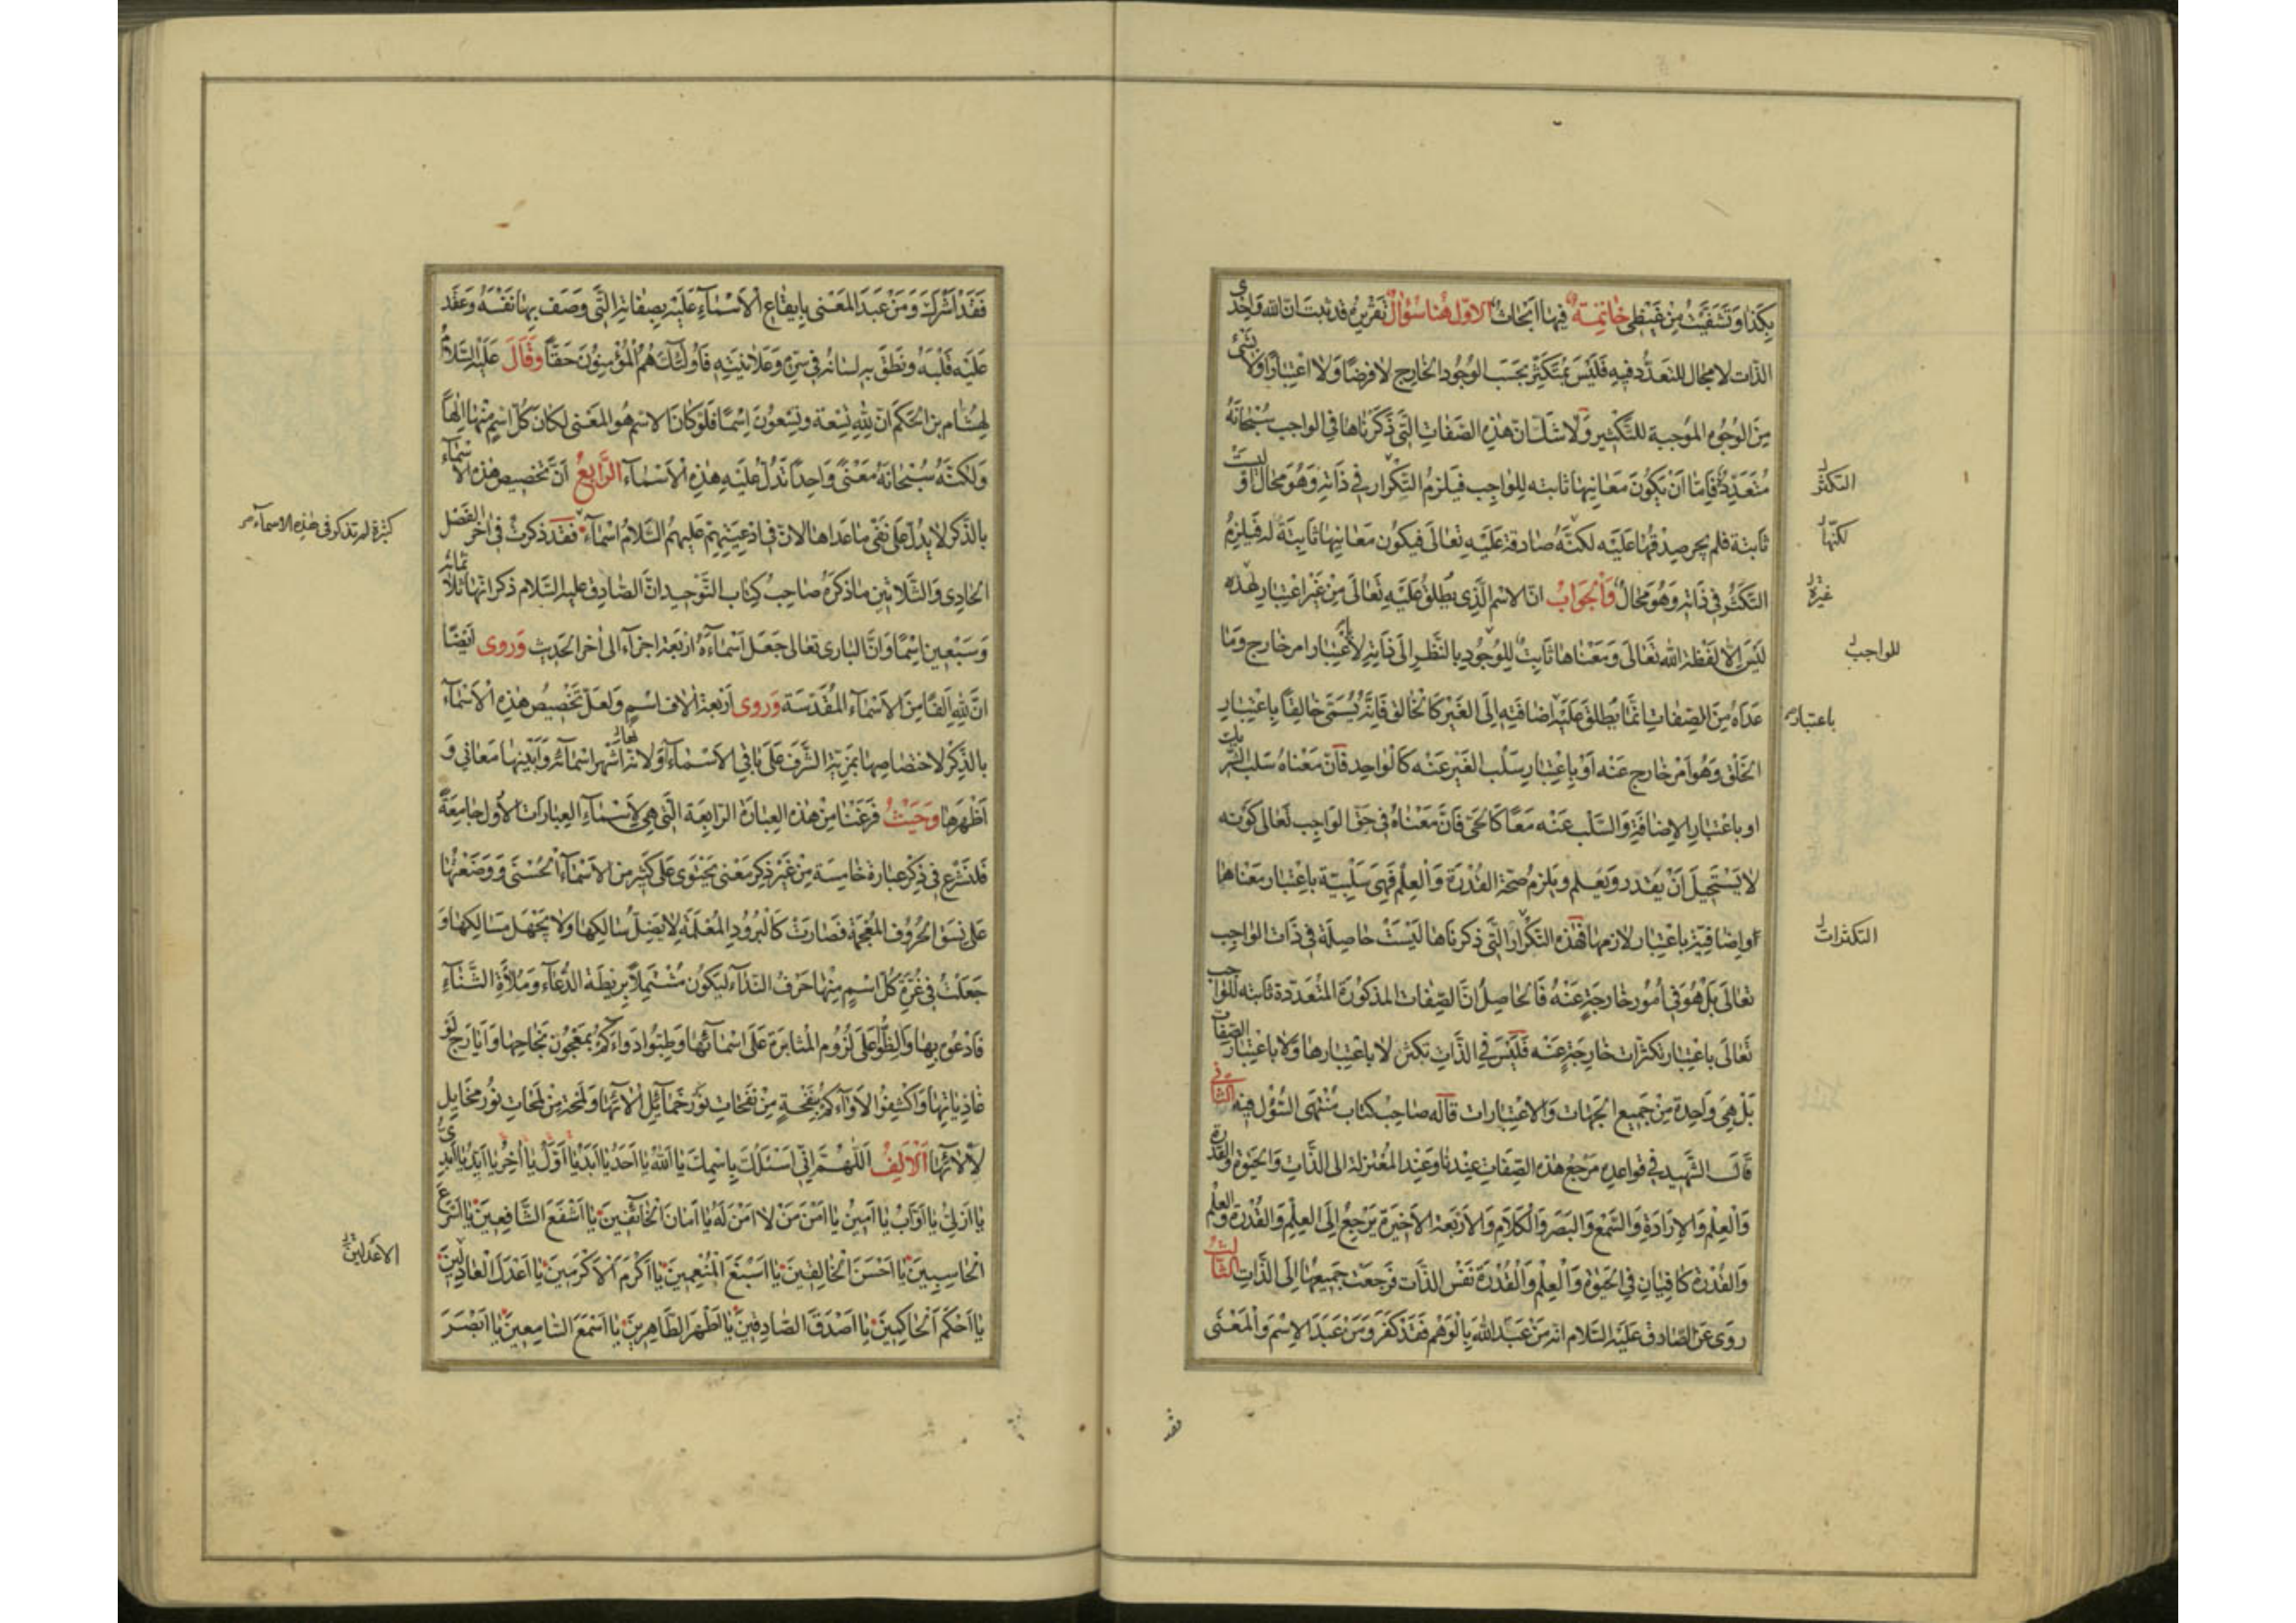 بِكَذا وَتَشَفَّيْتُ مِنْ غَيْظِى خَاتِمَةٌ فيها اَبْحَاثٌ الاوّل هُنا سُؤالٌ تَقْرِيرُه قد ثبَتَ انّ الله وَاحِدىّ
الذّات لا مجال للتعَدُّد فيهِ فَلَيْسَ بمُتَكَثِّر بحَسَب الوُجُود الخارِج لا فرضًا وَلا اعْتِبارًا وَلا بشَىْءٍ
مِنَ الوُجُوه المُوجبة للتَّكْثِير وَلا شَكّ انّ هذِهِ الصّفَاتِ الّتى ذَكَرْنَاهَا فِى الواجب سُبْحَانَهُ
مُتَعَدِّدَةٌ فَاِمّا اَنْ يَكُونَ مَعَانِيهَا ثَابتَه لِلْوَاجِب فيَلزمُ التَّكْرار فى ذَاتِهِ وَهُوَ مَحَالٌ اَوْ لَيسَتْ
ثَابتَة فلم يجز صِدْقُهَا عَلَيْه لكنّهُ صَادقة عَلَيْهِ تعَالى فيكُون مَعَانِيهَا ثَابِتَةً له فَيلزمُ
التكَثُّر فى ذَاتِهِ وَهُوَ مَحَالٌ وَالجَوَابُ انّ الاسْم الَّذِى يُطْلَقُ عَلَيْهِ تَعَالَى مِنْ غَيْرِ اعْتِبَارٍ لهذه
لَيْسَ الاّ لَفْظَة الله تَعَالَى وَمَعْنَاها ثَابِتٌ لِلْوُجُودِ بِالنَّظَرِ اِلَى ذَاتِهِ لا بأعْتِبار امر خارج وَمَا
عَدَاهُ مِنَ الصِّفَاتِ انّمَا يطلق عَلَيْهِ اضَافَتِهِ اِلَى الغَيْر كَالخَالق فَاِنَّهُ يُسَمَّى خَالِقًا بِاعْتِبَارِ
الخَلْق وَهُوَ اَمْرٌ خَارج عَنْه اَوْ بِاعْتِبَارِ سَلْب الغَيْر عَنْه كَالوَاحِد فَاِنّ مَعْنَاهُ سَلب الشّريك
او باعْتِبارِ الاِضَافَةِ وَالسَّلْب عَنْه مَعًا كَالحَىّ فَاِنَّ مَعْنَاهُ فِى حَقّ الوَاجِب تَعَالى كَوْنه
لا يَسْتَحِيلُ اَنْ يَقدر وَيَعْلم وَيَلزمُ صحّة القُدْرَة وَالْعِلْم فَهِىَ سَلْبِيّة باِعْتِبَارِ مَعْنَاهَا
او اِضَافِيّة بِاعْتِبارِ لازمها فَهَذه التَّكْرار الَّتى ذَكرنَاها لَيْسَتْ حَاصِلَة فى ذَات الوَاجِب
تعَالَى بَلْ هُوَ فى اُمُورٍ خَارجَةٍ عَنْهُ فَالحَاصِلُ انَّ الصِّفَات المذكُورَة المُتَعَدِّدة ثابته للوَاجب
تَعَالَى باعْتِبَارِ تكثّرَات خَارِجَةٍ عَنْه فَلَيْسَ فِى الذَّاتِ تكثر لا باعْتِبَارهَا وَلا بِاعْتِبَارِ الصِّفَات
بَلْ هِىَ وَاحِدَة مِنْ جَمِيع الجهَات وَالاعْتِبَارَات قَالَه صَاحِبُ كتَاب مُنْتَهَى السُّؤْل فيه الثَّانى
قَالَ الشَّهِيد فى قواعدِهِ مَرْجعُ هذِه الصّفَاتِ عِنْدنَا وَعَنْد المُعْتَزلة الى الذَّاتِ وَالحَيٰوةِ وَالقُدْرَة
وَالْعِلْمِ وَالاِرَادَةِ وَالسَّمْع وَالبَصَر وَالْكَلَامِ وَالاَرْبَعة الاَخِيرَة يَرْجعُ اِلَى العِلْمِ وَالقُدْرَةِ وَالعِلْم
وَالقُدْرَة كَافِيَان فى الحَيٰوةِ وَالْعِلْم وَالْقُدْرَة نَفْس الذَّات فَرَجعَتْ جَمِيعهَا اِلَى الذَّاتِ الثَّالث
رُوِىَ عَنِ الصّادق عَلَيْهِ السَّلام انه مَنْ عَبَدَ اللهَ بِالْوَهْم فَقَدْ كَفَرَ وَمَنْ عَبَدَ الاِسْمَ وَالْمَعْنَى
التكثّر
لكنّها
غيره
للواجب
باعتبار
التكثرات
فقد
فَقَدْ اَشْرَكَ وَمَنْ عَبَدَ المَعْنى بِاِيقَاعِ الْاَسْمَآءِ عَلَيْهِ بِصِفَاتِهِ الَّتى وَصَفَ بِهَا نَفْسَهُ وَعَقَد
عَلَيْه قَلْبَهُ وَنَطَقَ بِهِ لِسَانُهُ فى سِرِّهِ وَعَلانِيَتِهِ فَاُولٰئِكَ هُمُ الْمُؤْمِنُونَ حَقًّا وَقَالَ عَلَيْهِ السَّلامُ
لِهِشَامِ بن الحَكَم انّ لِلّهِ تِسْعَة وَتِسْعُونَ اِسْمًا فَلَوْ كَانَ الاسْم هُوَ المَعْنى لكَانَ كُلّ اسْمٍ مِنْهَا اِلٰهًا
وَلٰكنَّهُ سُبْحَانَهُ مَعْنًى وَاحِدًا تَدُلّ عَلَيْهِ هٰذِهِ الْاَسْمَآء الرَّابِعُ اَنَّ تَخْصِيص هٰذِه الاَسْمَآء
بِالذّكر لا يَدُلّ عَلى نَفْى مَا عَدَاهَا لانّ فى اَدْعِيَتِهِمْ عَلَيهِمُ السَّلامُ اسْمَآء فقَدْ ذكرتُ فى آخر الفَصْل
الحَادِى وَالثَّلاثِينَ مَا ذكرَهُ صَاحِبُ كِتَابِ التَّوْحِيد انّ الصَّادِق عليه السَّلام ذكر انّهَا ثلاثمائة
وَسَبْعِين اِسْمًا وَانَّ البَارى تعَالى جَعَلَ اَسْمَآءَهُ اَرْبَعَة اجزآء الى آخر الحَدِيث وَرَوى اَيْضًا
انَّ لِلّهِ اَلْفًا مِنَ الاَسْمَآء المُقَدَّسَة وَرَوى اَرْبعة آلاف اسْمٍ وَلَعَلّ تَخْصِيصَ هٰذِهِ الْاَسْمَآء
بِالذِّكْر لاخْتصَاصِهَا بمَزِيّةِ الشَّرَفِ عَلَى بَاقى الاَسْمَآءِ اَوْ لانّهَا اَشْهر اسْمَائِهِ تعَالى وَاَبْيَنها مَعَانِى وَ
اَظْهَرهَا وَحَيْثُ فَرَغْنَا مِنْ هٰذه العِبَارَة الرَّابِعَة الَّتى هِىَ لِاَسْمَآءِ العِبَارَات الاُوَل جَامِعَةً
فَلنَشْرَع فى ذِكْرِ عِبَارة خَامِسَة مِنْ غَيْرِ ذِكر مَعْنى يَحْتَوِى عَلى كَثِيرٍ مِنَ الاَسْمَآء الحُسْنَى وَوَضَعْتُهَا
عَلى نَسَقِ الحُرُوف المُعْجَمَة فَصَارَتْ كَالْبُرُودِ المُعْلَمَة لا يَضِلّ سَالِكهَا وَلا يَجْهَل مَسَالِكهَا وَ
جَعَلْتُ فى غُرَّة كُلّ اسْمٍ مِنْهَا حَرْفَ النِّدَآء لِيَكُونَ مُشْتَمِلاً بِرِيطَة الدُّعَآء وَمُلاءَةِ الثَّنَآءِ
فَادْعُوهُ بِهَا وَاَلِظّوا عَلَى لُزُومِ المُثَابَرَة عَلَى اسْمَآئِهَا وَطيّبُوا دَوَاءَكُمْ بِمَعْجُونِ نَجَاحِهَا وَاَيَارَجِ لَوْ
غَاذِيَاتِهَا وَاكْشِفُوا لَأوَاءَكُمْ بِنَفْحَةٍ مِنْ نَفَحَاتِ نَوْر خَمَآئِلِ آلَآئِهَا وَلمحَة مِنْ لَمَحَاتِ نُور مَخَايِل
لَأْلَائِهَا اَلْاَلِفُ اَللّهُمَّ اِنّى اَسْئَلُكَ بِاسْمِكَ يَا اَللهُ يَا اَحَدُ يَا اَبَدُ يَا اَوَّلُ يَا آخِرُ يَا اَبَدِىُّ
يَا اَزَلِىُّ يَا اَوَّابُ يَا اَمِينُ يَا اَمْنَ مَنْ لا اَمْنَ لَهُ يَا اَمَانَ الْخَائِفِينَ يَا اَشْفَعَ الشَّافِعِينَ يَا اَسْرَعَ
الحَاسِبِينَ يَا اَحْسَنَ الْخَالِقِينَ يَا اَسْبَغَ الْمُنْعِمِينَ يَا اَكْرَمَ الْاَكْرَمِينَ يَا اَعْدَلَ الْعَادِلِينَ
يَا اَحْكَمَ الْحَاكِمِينَ يَا اَصْدَقَ الصَّادِقِينَ يَا اَطْهَرَ الطَّاهِرِينَ يَا اَسْمَعَ السَّامِعِينَ يَا اَبْصَرَ
كثيرة لم تذكر فى هذه الاسمآء
الاعدلين